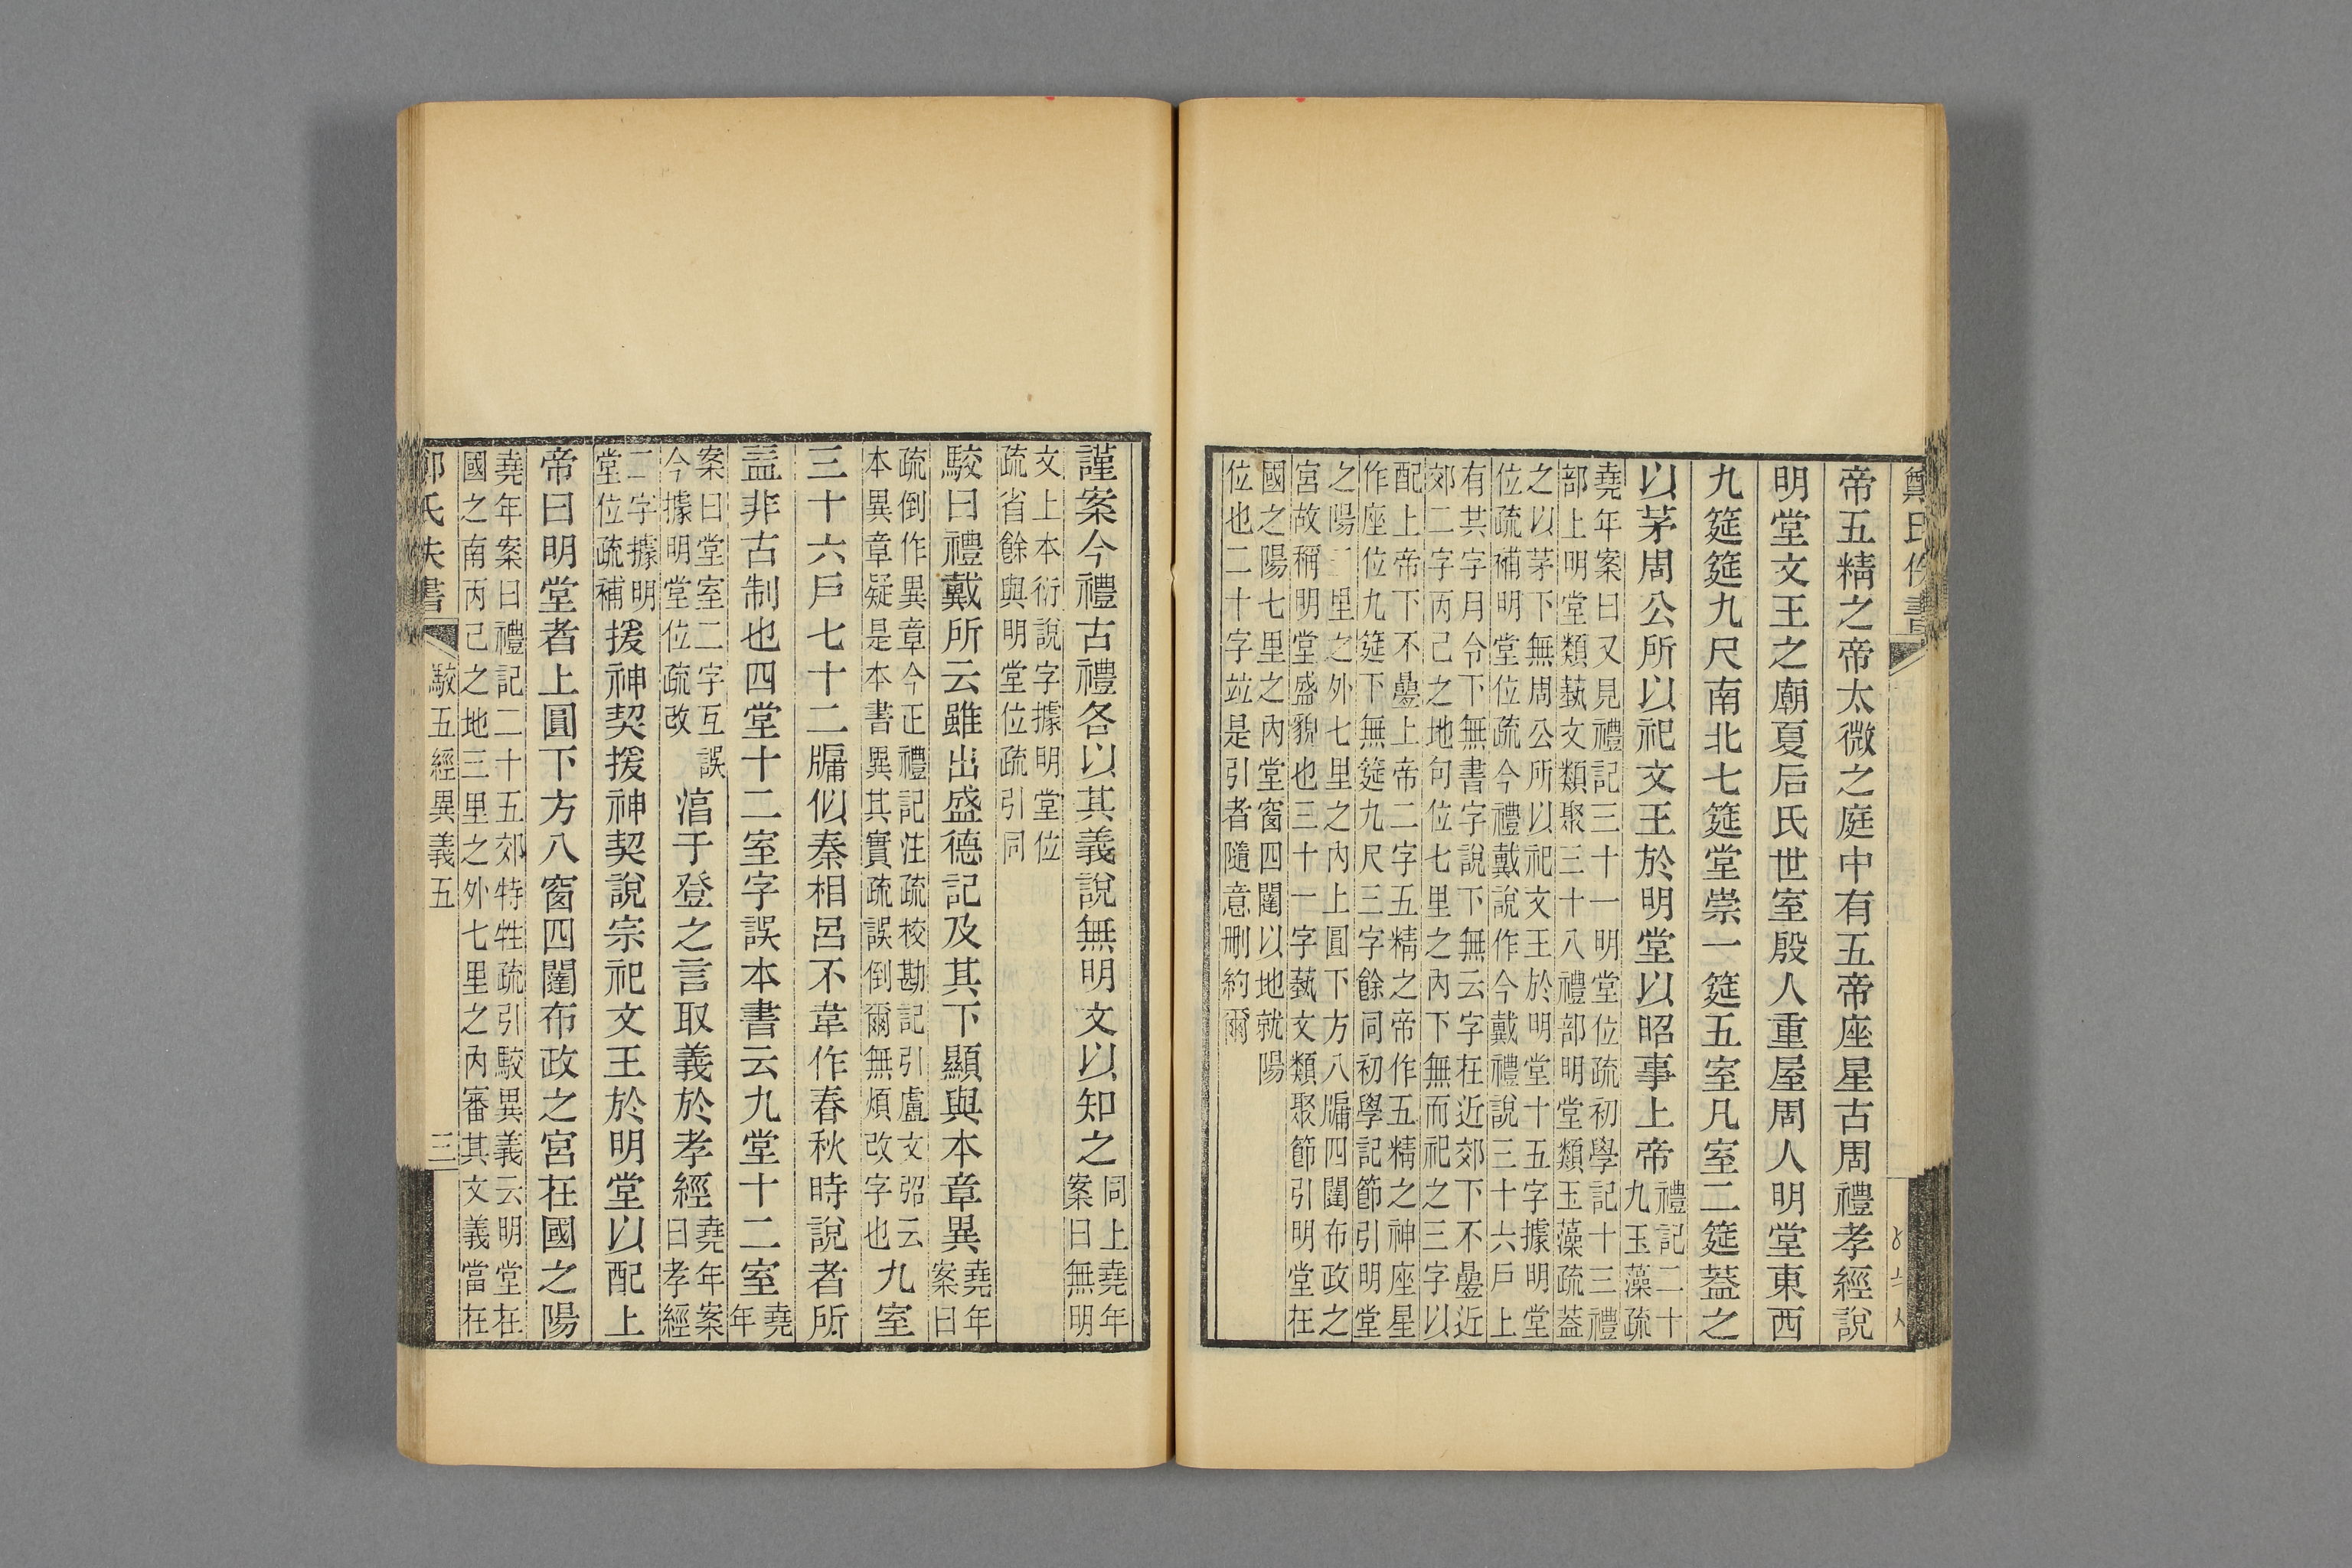 鄭氏佚書
帝五精之帝太微之庭中有五帝座星古周禮孝經說
明堂文王之廟夏后氏世室殷人重屋周人明堂東西
九筵筵九尺南北七筵堂崇一筵五室凡室二筵葢之
以茅周公所以祀文王於明堂以昭事上帝
禮記二十
九玉藻疏
堯年案曰又見禮記三十一明堂位疏初學記十三禮
部上明堂類藝文類聚三十八禮部明堂類玉藻疏葢
之以茅下無周公所以祀文王於明堂十五字據明堂
位疏補明堂位疏今禮戴說作今戴禮說三十六戶上
有其字月令下無書字說下無云字在近郊下不曡近
郊二字丙己之地句位七里之內下無而祀之三字以
配上帝下不曡上帝二字五精之帝作五精之神座星
作座位九筵下無筵九尺三字餘同初學記節引明堂
之陽三里之外七里之內上圓下方八牖四闥布政之
宮故稱明堂盛貌也三十一字藝文類聚節引明堂在
國之陽七里之內堂窗四闥以地就陽
位也二十字竝是引者隨意刪約爾
謹案今禮古禮各以其義說無明文以知之
同上堯年
案曰無明
文上本衍說字據明堂位
疏省餘與明堂位疏引同
駮曰禮戴所云雖出盛德記及其下顯與本章異
堯年
案曰
疏倒作異章今正禮記注疏校勘記引盧文弨云
本異章疑是本書異其實疏誤倒爾無煩改字也
九室
三十六戶七十二牖似秦相呂不韋作春秋時說者所
葢非古制也四堂十二室字誤本書云九堂十二室
堯
年
案曰堂室二字互誤
今據明堂位疏改
湻于登之言取義於孝經
堯年案
曰孝經
二字據明
堂位疏補
援神契援神契說宗祀文王於明堂以配上
帝曰明堂者上圓下方八窗四闥布政之宮在國之陽
堯年案曰禮記二十五郊特牲疏引駮異義云明堂在
國之南丙己之地三里之外七里之內審其文義當在
鄭氏佚書
駮五經異義五
三